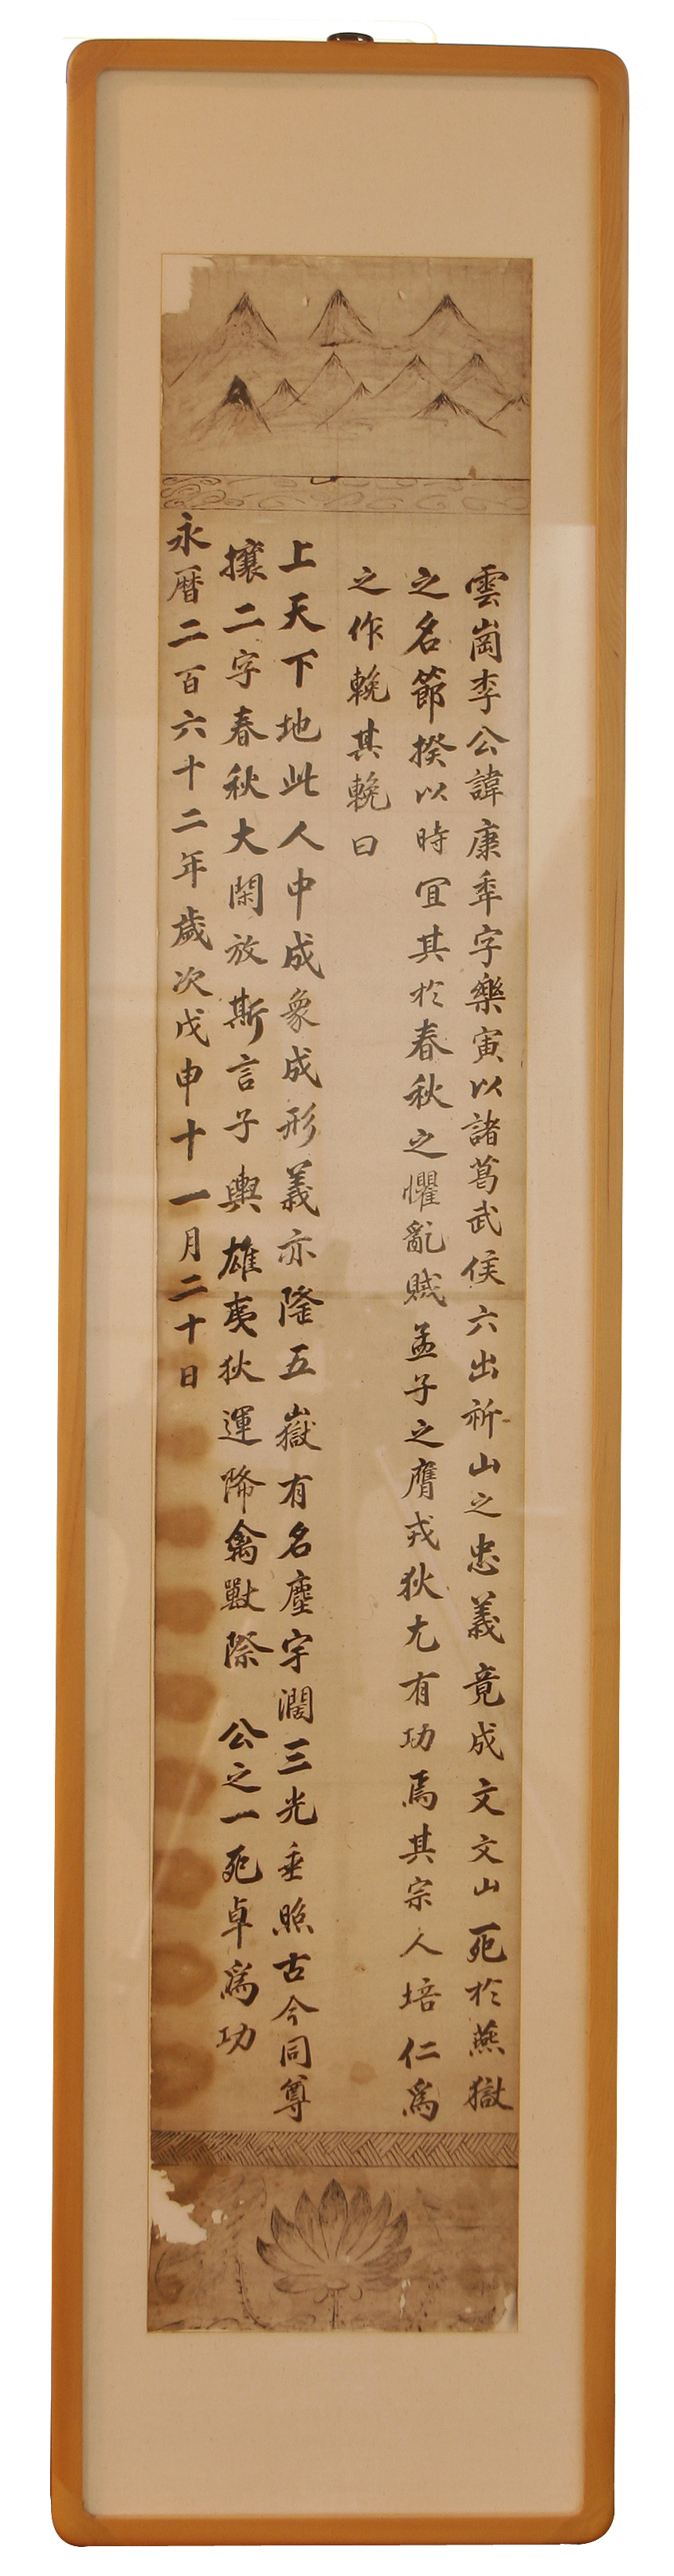 雲崗李公諱康秊字樂寅以諸葛武侯六出祈山之忠義竟成文文山死於燕獄
之名節揆以時宜其於春秋之懼亂賊孟子之膺戎狄尤有功焉其宗人培仁爲
之作輓其輓曰
上天下地此人中成象成形義亦隆五嶽有名塵宇濶三光垂照古今同尊
攘二字春秋大閑放斯言子輿雄夷狄運降禽獸際 公之一死卓爲功
永曆二百六十二年歲次戊申十一月二十日